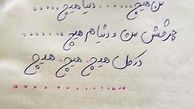 من هیچ ..... دنیا هیچ .....
چرخش من و دنیام هیچ
در کل هیچ، هیچ، هیچ